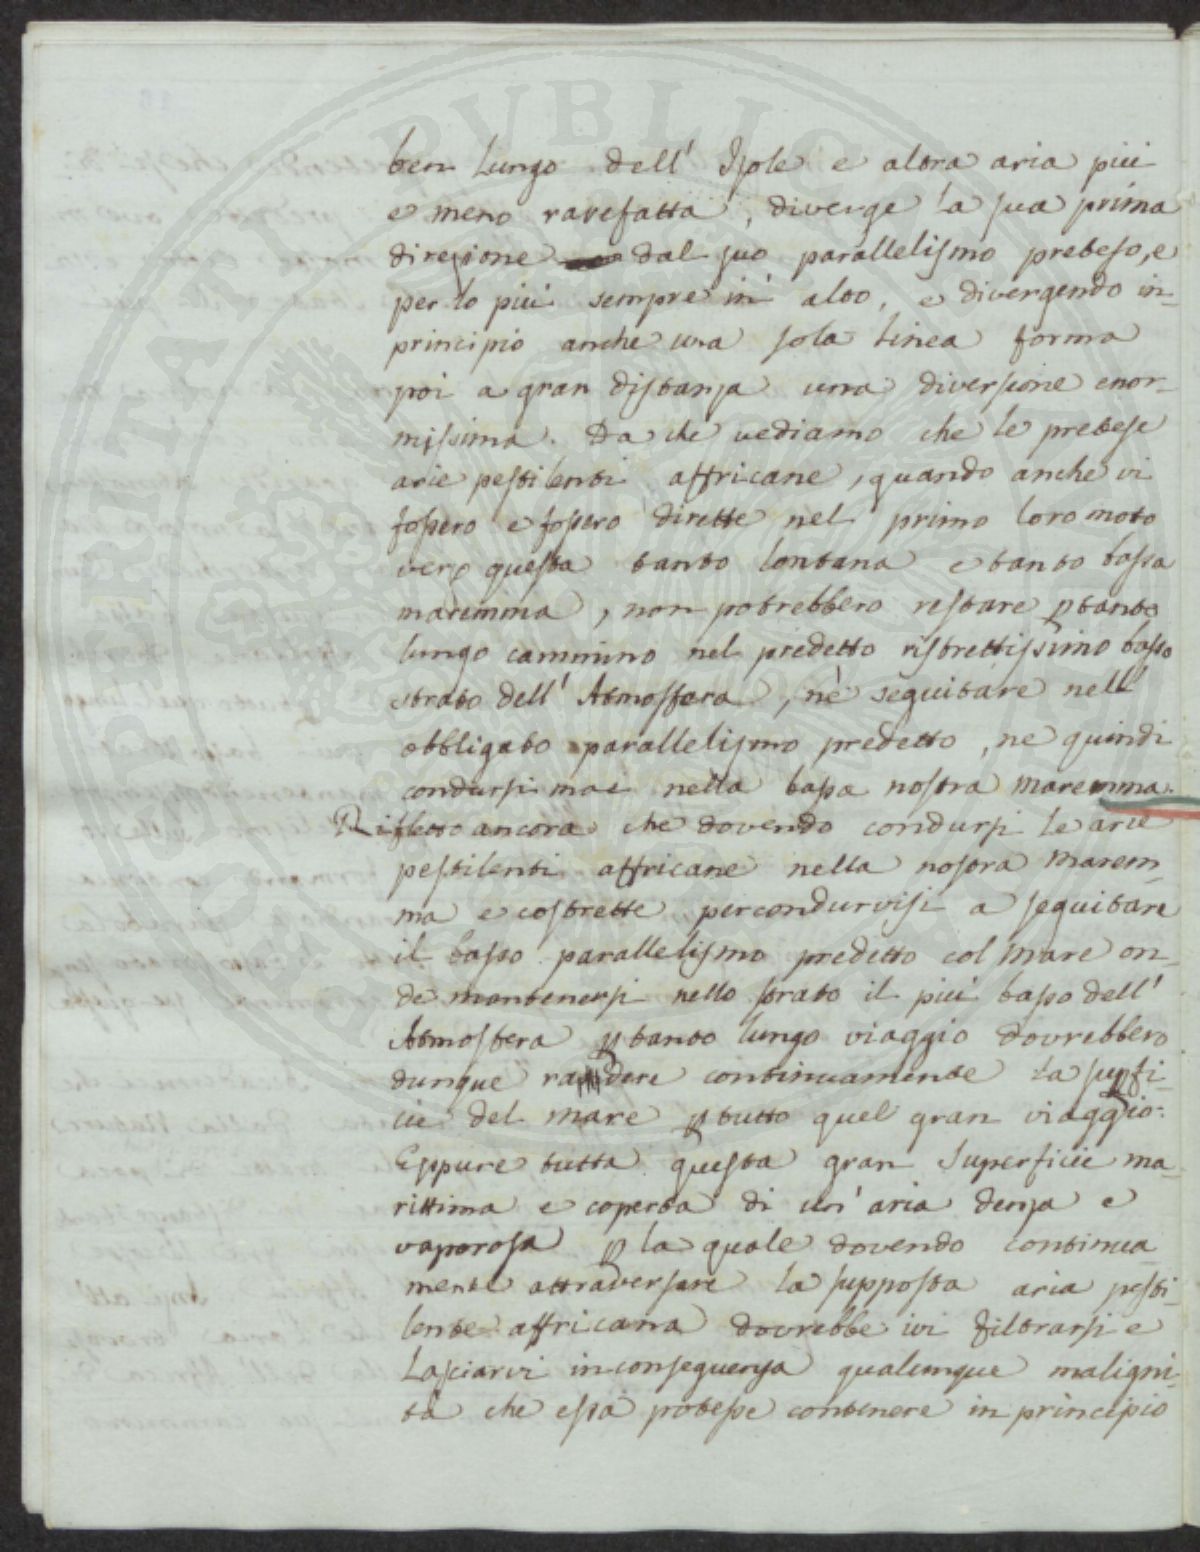 ben lungo dell' Isole e altra aria più
e meno rarefatta, diverge la sua prima
direzione dal suo parallelismo preteso, e
per lo più sempre in alto, e divergendo in-
principio anche una sola linea forma
poi a gran distanza una diversione enor-
missima. Da che vediamo che le pretese
arie pestilenti affricane, quando anche vi
fossero e fossero dirette nel primo loro moto
verso questa tanto lontana e tanto bassa
maremma, non potrebbero restare ꝑ tanto
lungo cammino nel predetto ristrettissimo basso
strato dell' Atmosfera, nè seguitare nell'
obbligato parallelismo predetto, ne quindi
condursi mai nella bassa nostra maremma.
Rifletto ancora che dovendo condursi le arie
pestilenti affricane nella nostra Marem-
ma e costrette percondurvisi a seguitare
il basso parallelismo predetto col Mare on-
de mantenersi nello strato il più basso dell'
Atmosfera ꝑ tanto lungo viaggio dovrebbero
dunque radere continuamente la suꝑfi-
cie del mare ꝑ tutto quel gran viaggio:
Eppure tutta questa gran Superficie ma-
rittima e coperta di un' aria densa e
vaporosa ꝑ la quale dovendo continua
mente attraversare la supposta aria pesti-
lente affricana dovrebbe ivi filtrarsi e
Lasciarvi inconseguenza qualunque maligni-
tà che essa potesse contenere in principio